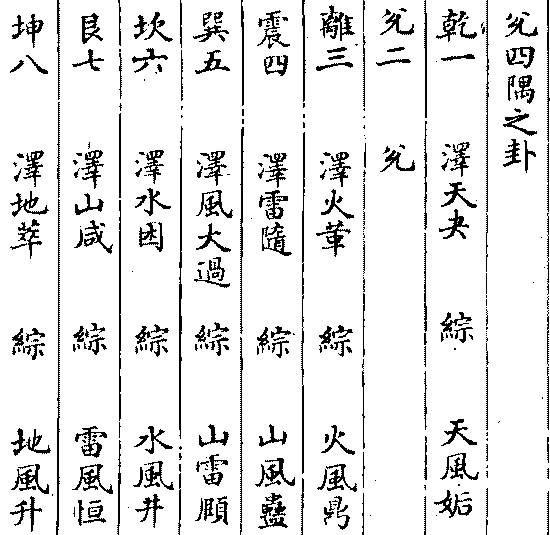 兌四隅之卦
乾一 澤天夬 綜 天風姤
兌二 兌
離三 澤火革 綜 火風鼎
震四 澤雷隨 綜 山風蠱
巽五 澤風大過 綜 山雷頤
坎六 澤水困 綜 水風井
艮七 澤山咸 綜 雷風恒
坤八 澤地萃 綜 地風升